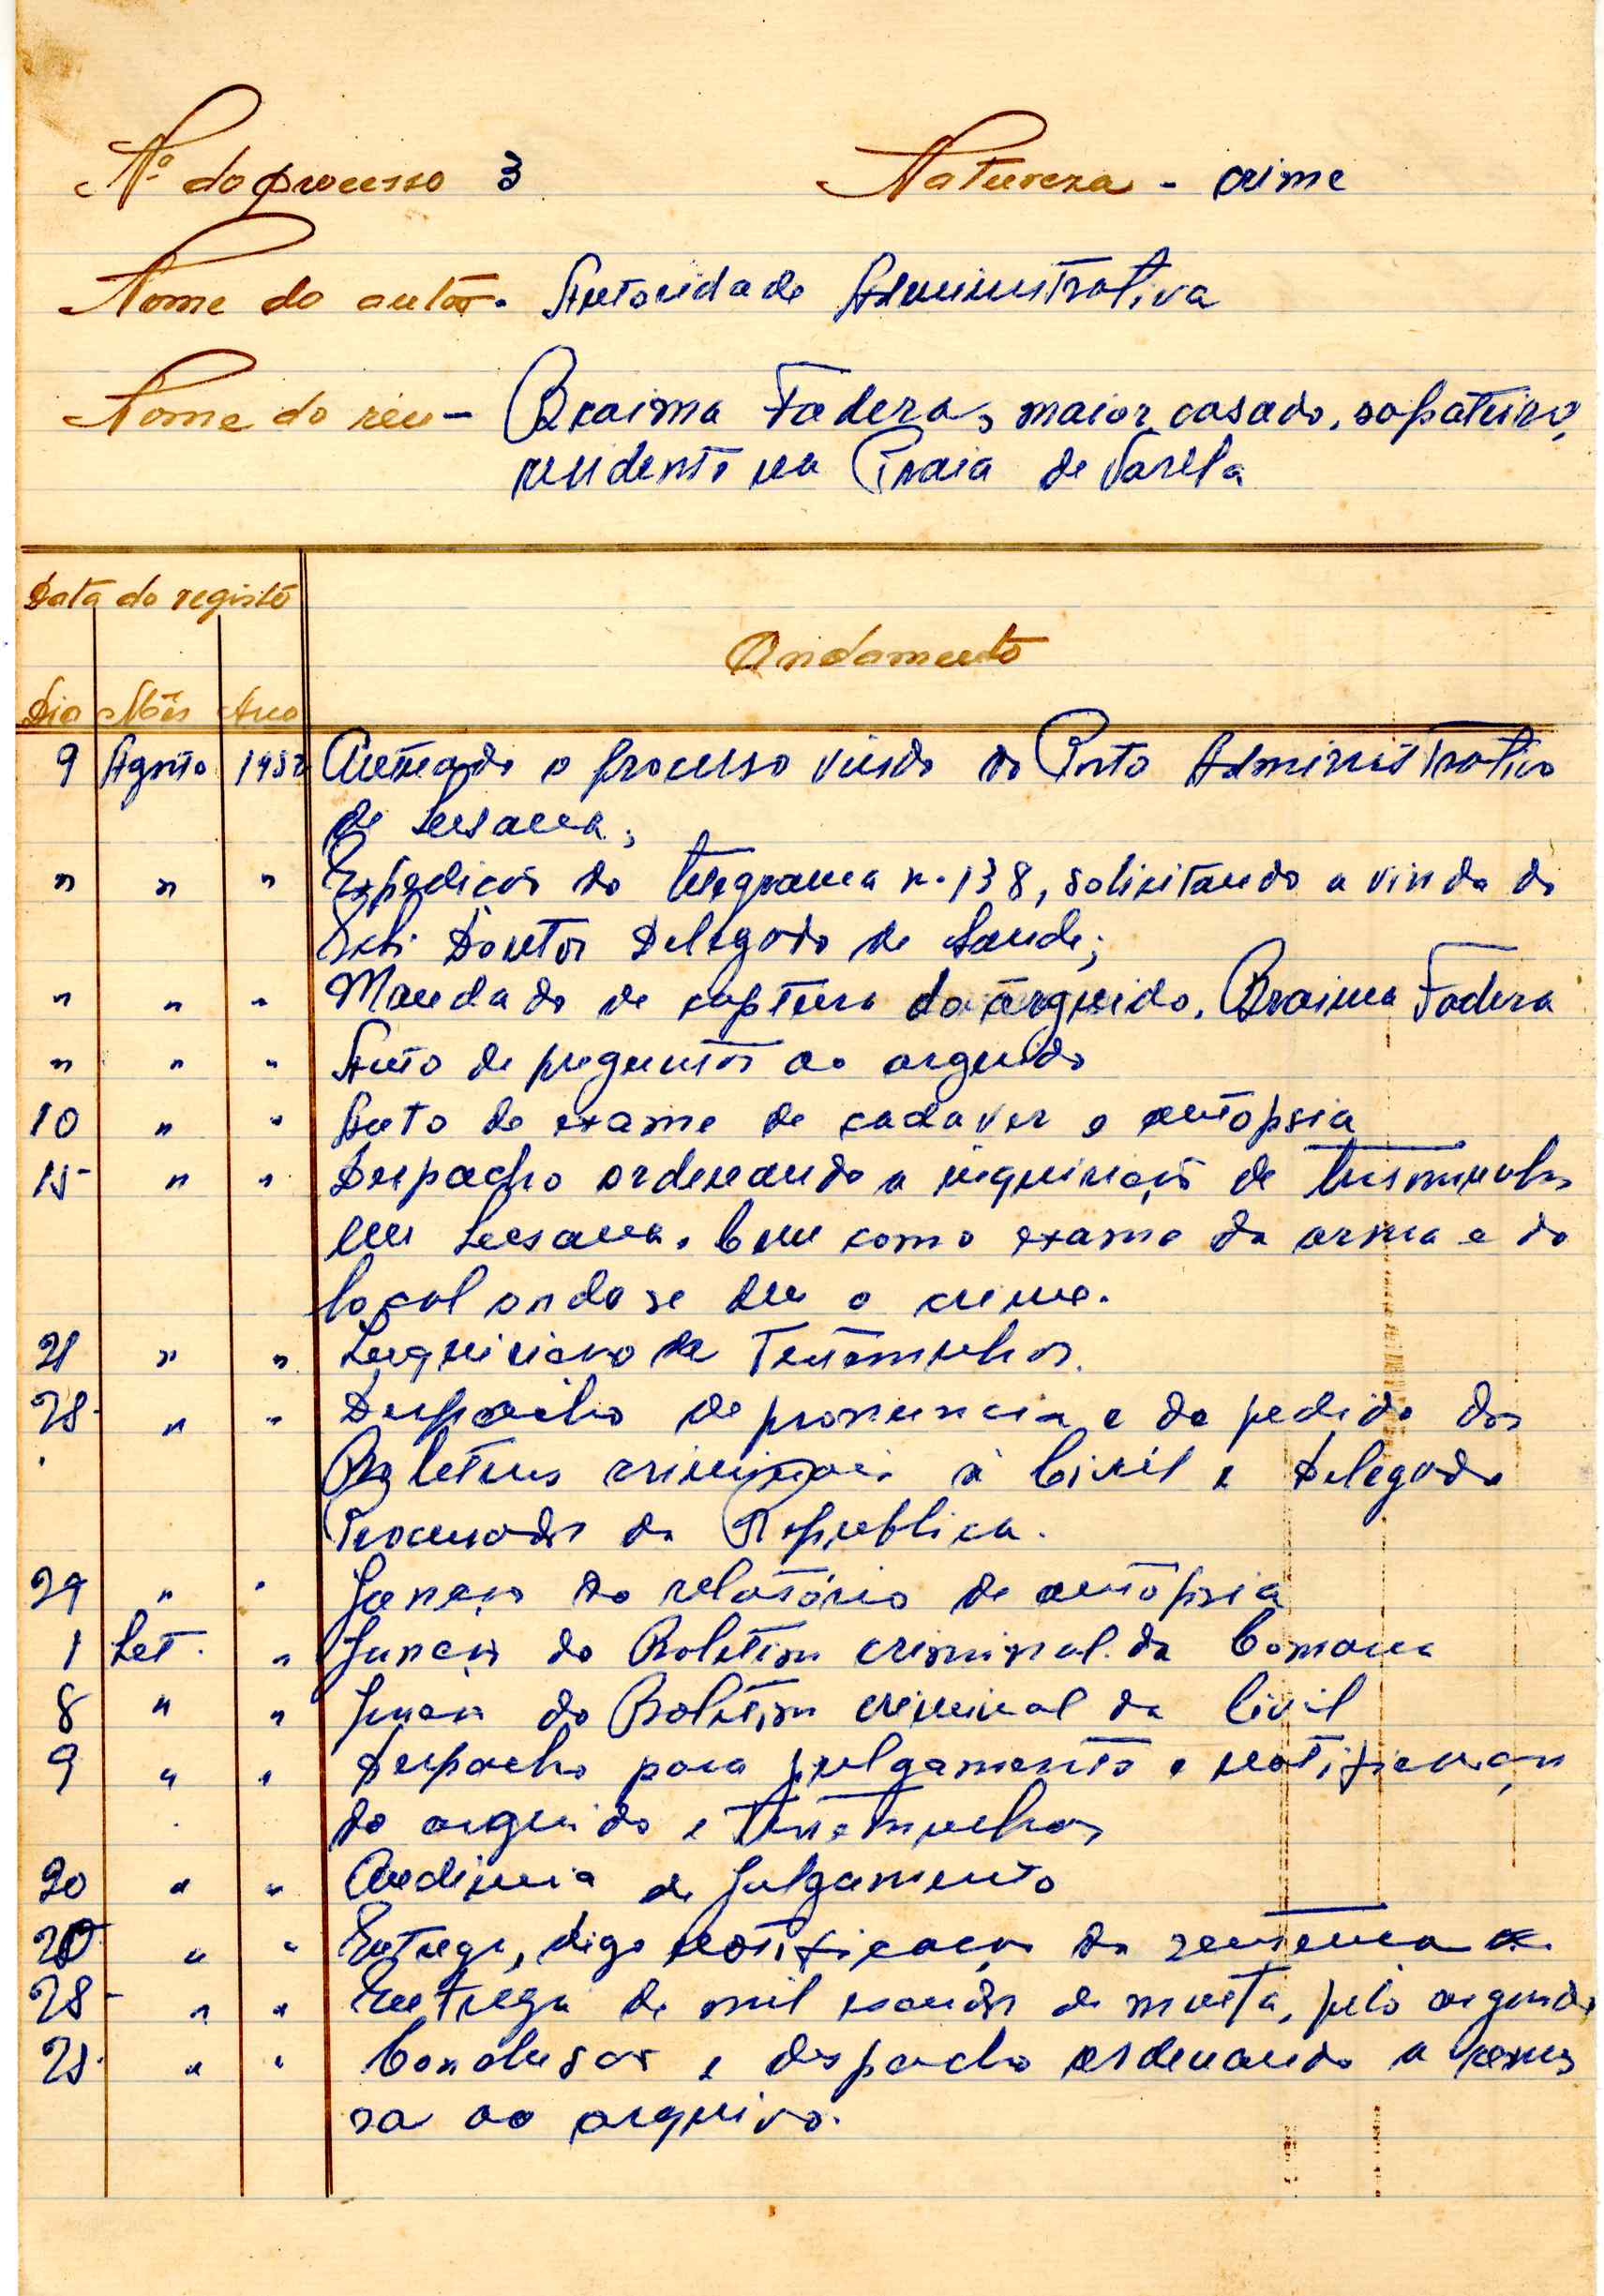 Nº do processo 3 Natureza - crime
Nome do autor - Autoridade Administrativa
Nome do réu - Braima Fadera, maior, casado, sapateiro,
residente na Praia de Varela
Data do registo
Andamento
Dia Mês Ano
9 Agosto 1952 Autuado o processo vindo do Posto Administrativo
de Susana;
" " " Expedição do telegrama n. 138, solicitando a vinda do
Doutor Delegado de Saude;
" " " Mandado de captura do arguido, Braima Fadera
" " " Auto de preguntas ao arguido
10 " " Auto de exame de cadaver e autopsia
15 " " Despacho ordenando a inquirição de testemunhas
em Susana, bem como exame da arma e do
local onde se deu o crime.
21 " " Inquirição de Testemunhas.
28 " " Despacho de pronuncia e do pedido dos
Boletins criminais à Civil e Delegado
Procurador da Republica.
29 " " Junção do relatório de autópsia
1 Set. " Junção do Boletim criminal da Comarca
8 " " Junção do Boletim criminal da Civil
9 " " Despacho para julgamento e notificação
do arguido e testemunhas
20 " " Audiencia de Julgamento
20 " " Entrega, digo notificação da sentença
28 " " Entrega de mil escudos de multa, pelo arguido
28 " " Conclusão e despacho ordenando a remes
sa ao arquivo.